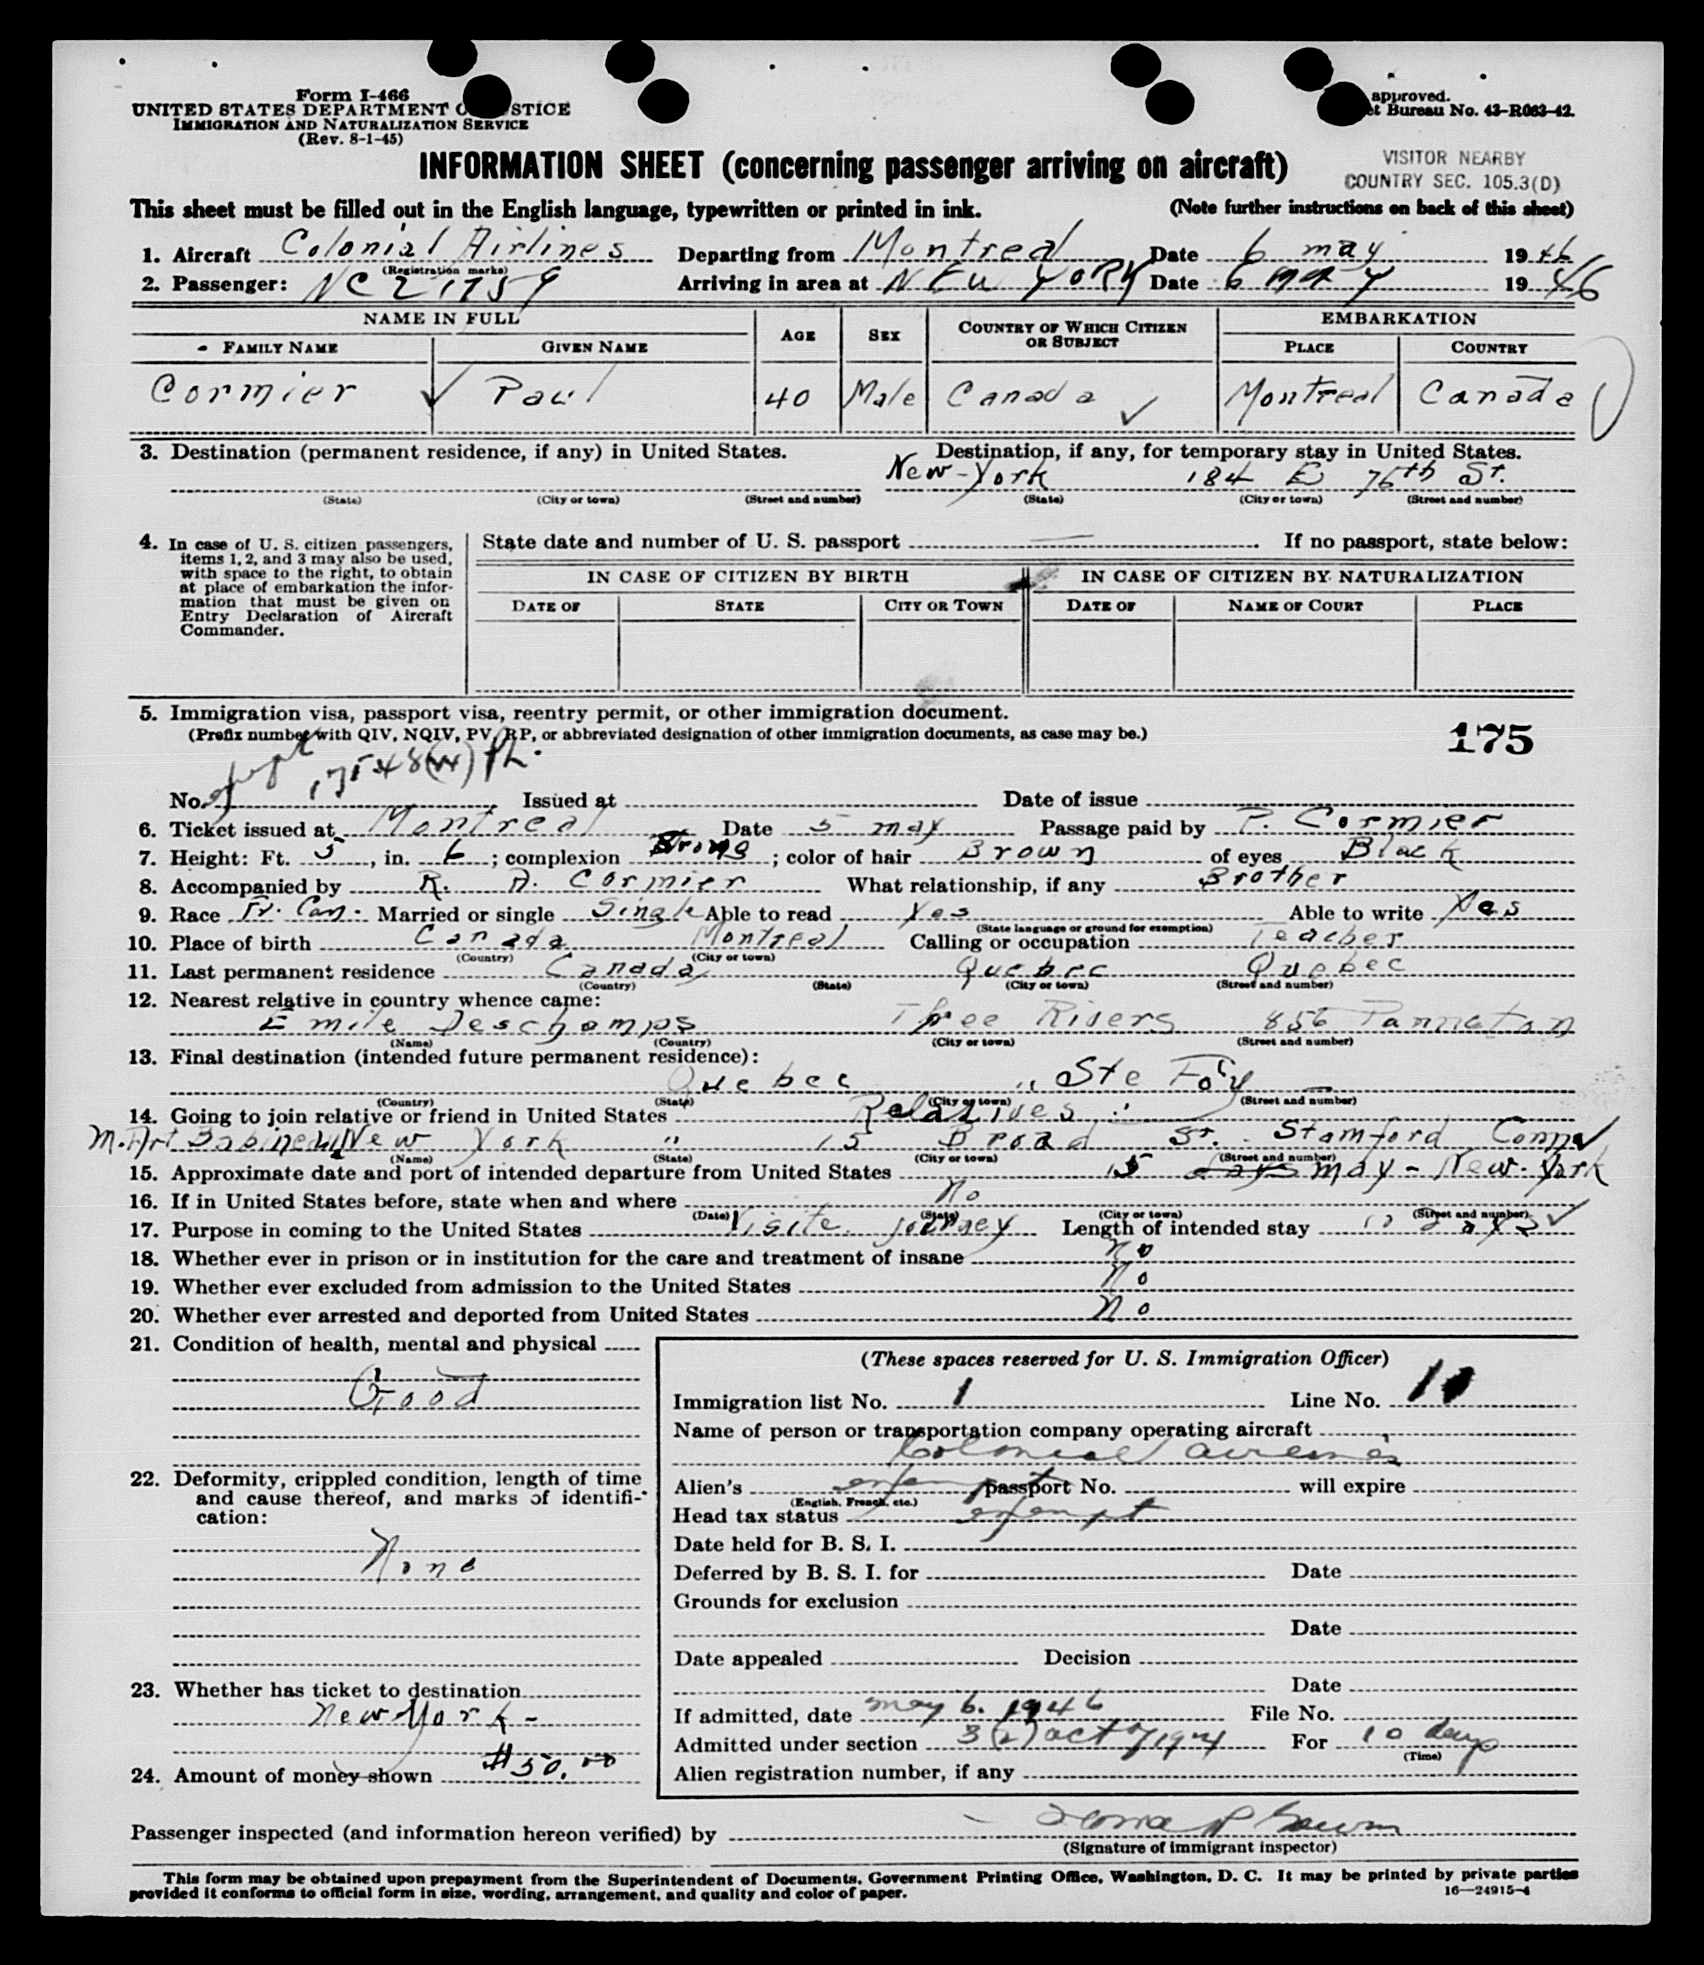 Form I-466
UNITED STATES DEPARTMENT O STICE
IMMIGRATION AND NATURALIZATION SERVICE
(Rev. 8-1-45)
approved.
et Bureau No. 43-R063-42.
INFORMATION SHEET (concerning passenger arriving on aircraft)
VISITOR NEARBY
COUNTRY SEC. 105.3(D)
This sheet must be filled out in the English language, typewritten or printed in ink. (Note further instructions on back of this sheet)
1. Aircraft Colonial Airlines Departing from Montreal Date 6 may 1946
(Registration marks)
2. Passenger: NC 21759 Arriving in area at NEW YORK Date 6 MAY 1946
NAME IN FULL AGE SEX COUNTRY OF WHICH CITIZEN OR SUBJECT EMBARKATION
FAMILY NAME GIVEN NAME PLACE COUNTRY
Cormier Paul 40 Male Canada Montreal Canada
3. Destination (permanent residence, if any) in United States. Destination, if any, for temporary stay in United States.
New-York 184 E 76th St.
(State) (City or town) (Street and number) (State) (City or town) (Street and number)
4. In case of U. S. citizen passengers, items 1, 2, and 3 may also be used, with space to the right, to obtain at place of embarkation the information that must be given on Entry Declaration of Aircraft Commander.
State date and number of U. S. passport If no passport, state below:
IN CASE OF CITIZEN BY BIRTH IN CASE OF CITIZEN BY NATURALIZATION
DATE OF STATE CITY OR TOWN DATE OF NAME OF COURT PLACE
5. Immigration visa, passport visa, reentry permit, or other immigration document.
(Prefix number with QIV, NQIV, PV, RP, or abbreviated designation of other immigration documents, as case may be.)
175
No. Issued at Date of issue
6. Ticket issued at Montreal Date 5 may Passage paid by P. Cormier
7. Height: Ft. 5, in. 6; complexion Strong; color of hair Brown of eyes Black
8. Accompanied by R. A. Cormier What relationship, if any Brother
9. Race Fr. Can. Married or single Single Able to read Yes Able to write Yes
(State language or ground for exemption)
10. Place of birth Canada Montreal Calling or occupation Teacher
(Country) (City or town)
11. Last permanent residence Canada Quebec Quebec
(Country) (State) (City or town) (Street and number)
12. Nearest relative in country whence came:
Emile Deschamps Three Rivers 856 Panneton
(Name) (Country) (City or town) (Street and number)
13. Final destination (intended future permanent residence):
Quebec " Ste Foy
(Country) (State) (City or town) (Street and number)
14. Going to join relative or friend in United States Relatives :
M. Art Babineau New York " 15 Broad St. Stamford Conn
(Name) (State) (City or town) (Street and number)
15. Approximate date and port of intended departure from United States 15 days may - New-York
16. If in United States before, state when and where No
(Date) (State) (City or town) (Street and number)
17. Purpose in coming to the United States Visite journey Length of intended stay 10 days
18. Whether ever in prison or in institution for the care and treatment of insane No
19. Whether ever excluded from admission to the United States No
20. Whether ever arrested and deported from United States No
21. Condition of health, mental and physical
Good
22. Deformity, crippled condition, length of time and cause thereof, and marks of identification:
None
23. Whether has ticket to destination
New York -
24. Amount of money shown $50.00
(These spaces reserved for U. S. Immigration Officer)
Immigration list No. 1 Line No. 10
Name of person or transportation company operating aircraft
Colonial Airlines
Alien's exempt passport No. will expire
(English, French, etc.)
Head tax status exempt
Date held for B. S. I.
Deferred by B. S. I. for Date
Grounds for exclusion
Date
Date appealed Decision
Date
If admitted, date may 6. 1946 File No.
Admitted under section 3(2) act of 1924 For 10 days
(Time)
Alien registration number, if any
Passenger inspected (and information hereon verified) by
(Signature of immigrant inspector)
This form may be obtained upon prepayment from the Superintendent of Documents, Government Printing Office, Washington, D. C. It may be printed by private parties
provided it conforms to official form in size, wording, arrangement, and quality and color of paper.
16—24915-4